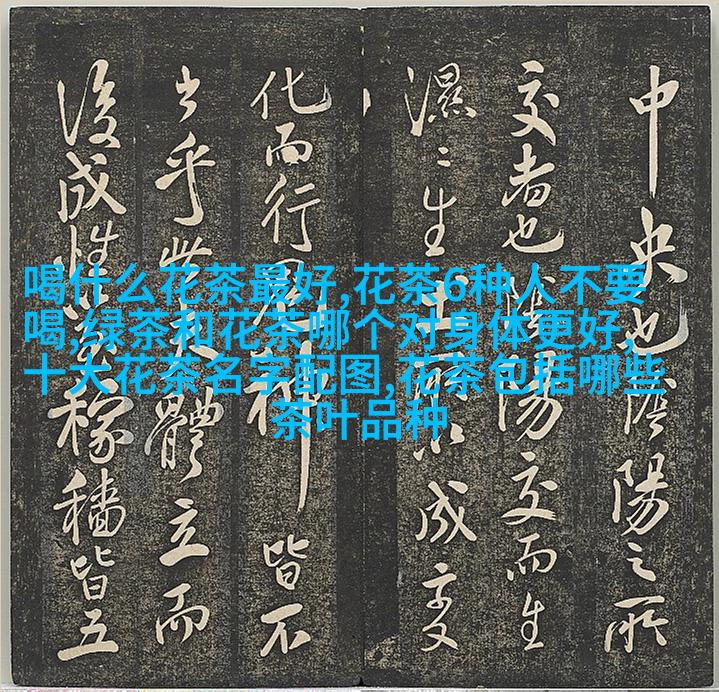 喝什么花茶最好,花茶6种人不要
喝,绿茶和花茶哪个对身体更好,
十大花茶名字配图,花茶包括哪些
茶叶品种
中央也陰陽之所
交者也陰陽交而生
濕〻生土成变
化而行神皆不
乎體立而
後成性稼穡皆五